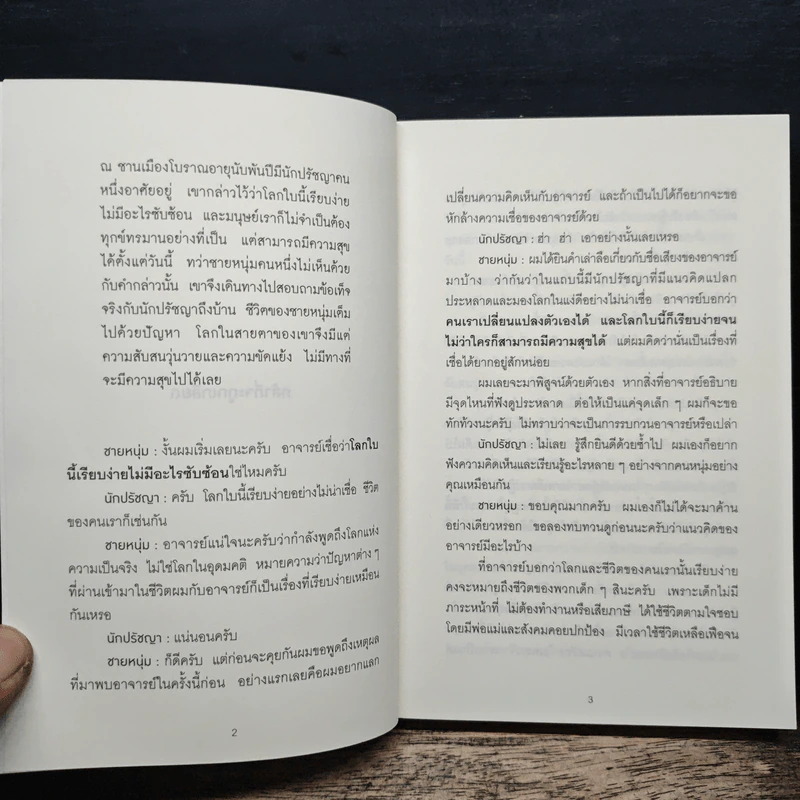 ณ ชานเมืองโบราณอายุนับพันปีมีนักปรัชญาคน
หนึ่งอาศัยอยู่ เขากล่าวไว้ว่าโลกใบนี้เรียบง่าย
ไม่มีอะไรซับซ้อน และมนุษย์เราก็ไม่จำเป็นต้อง
ทุกข์ทรมานอย่างที่เป็น แต่สามารถมีความสุข
ได้ตั้งแต่วันนี้ ทว่าชายหนุ่มคนหนึ่งไม่เห็นด้วย
กับคำกล่าวนั้น เขาจึงเดินทางไปสอบถามข้อเท็จ
จริงกับนักปรัชญาถึงบ้าน ชีวิตของชายหนุ่มเต็ม
ไปด้วยปัญหา โลกในสายตาของเขาจึงมีแต่
ความสับสนวุ่นวายและความขัดแย้ง ไม่มีทางที่
จะมีความสุขไปได้เลย
ชายหนุ่ม : งั้นผมเริ่มเลยนะครับ อาจารย์เชื่อว่าโลกใบ
นี้เรียบง่ายไม่มีอะไรซับซ้อนใช่ไหมครับ
นักปรัชญา : ครับ โลกใบนี้เรียบง่ายอย่างไม่น่าเชื่อ ชีวิต
ของคนเราก็เช่นกัน
ชายหนุ่ม : อาจารย์แน่ใจนะครับว่ากำลังพูดถึงโลกแห่ง
ความเป็นจริง ไม่ใช่โลกในอุดมคติ หมายความว่าปัญหาต่าง ๆ
ที่ผ่านเข้ามาในชีวิตผมกับอาจารย์ก็เป็นเรื่องที่เรียบง่ายเหมือน
กันเหรอ
นักปรัชญา : แน่นอนครับ
ชายหนุ่ม : ก็ดีครับ แต่ก่อนจะคุยกันผมขอพูดถึงเหตุผล
ที่มาพบอาจารย์ในครั้งนี้ก่อน อย่างแรกเลยคือผมอยากแลก
2
เปลี่ยนความคิดเห็นกับอาจารย์ และถ้าเป็นไปได้ก็อยากจะขอ
หักล้างความเชื่อของอาจารย์ด้วย
นักปรัชญา : ฮ่า ฮ่า เอาอย่างนั้นเลยเหรอ
ชายหนุ่ม : ผมได้ยินคำเล่าลือเกี่ยวกับชื่อเสียงของอาจารย์
มาบ้าง ว่ากันว่าในแถบนี้มีนักปรัชญาที่มีแนวคิดแปลก
ประหลาดและมองโลกในแง่ดีอย่างไม่น่าเชื่อ อาจารย์บอกว่า
คนเราเปลี่ยนแปลงตัวเองได้ และโลกใบนี้ก็เรียบง่ายจน
ไม่ว่าใครก็สามารถมีความสุขได้ แต่ผมคิดว่านั่นเป็นเรื่องที่
เชื่อได้ยากอยู่สักหน่อย
ผมเลยจะมาพิสูจน์ด้วยตัวเอง หากสิ่งที่อาจารย์อธิบาย
มีจุดไหนที่ฟังดูประหลาด ต่อให้เป็นแค่จุดเล็ก ๆ ผมก็จะขอ
ทักท้วงนะครับ ไม่ทราบว่าจะเป็นการรบกวนอาจารย์หรือเปล่า
นักปรัชญา : ไม่เลย รู้สึกยินดีด้วยซ้ำไป ผมเองก็อยาก
ฟังความคิดเห็นและเรียนรู้อะไรหลาย ๆ อย่างจากคนหนุ่มอย่าง
คุณเหมือนกัน
ชายหนุ่ม : ขอบคุณมากครับ ผมเองก็ไม่ได้จะมาค้าน
อย่างเดียวหรอก ขอลองทบทวนดูก่อนนะครับว่าแนวคิดของ
อาจารย์มีอะไรบ้าง
ที่อาจารย์บอกว่าโลกและชีวิตของคนเรานั้นเรียบง่าย
คงจะหมายถึงชีวิตของพวกเด็ก ๆ สินะครับ เพราะเด็กไม่มี
ภาระหน้าที่ ไม่ต้องทำงานหรือเสียภาษี ได้ใช้ชีวิตตามใจชอบ
โดยมีพ่อแม่และสังคมคอยปกป้อง มีเวลาใช้ชีวิตเหลือเฟือจน
3